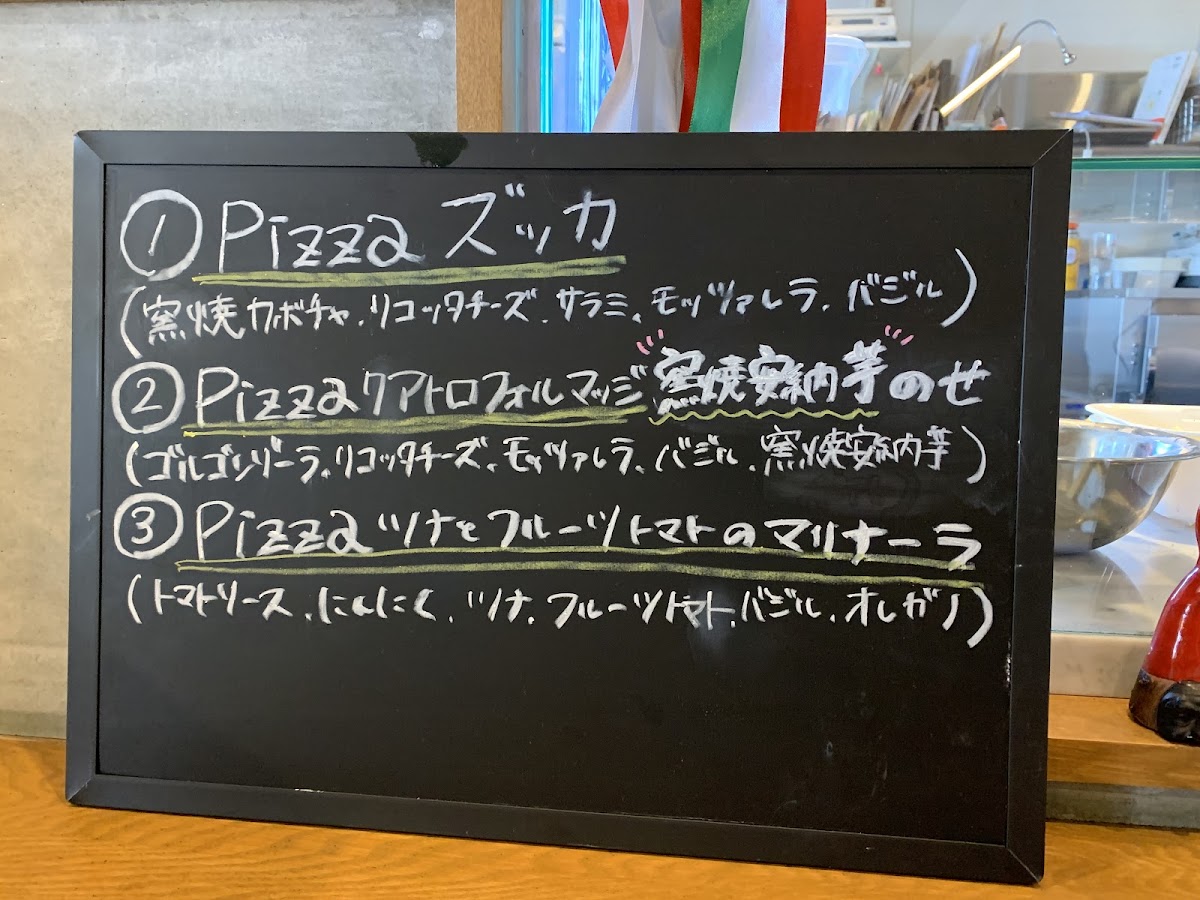 ① Pizza ズッカ
(窯焼カボチャ、リコッタチーズ、サラミ、モッツァレラ、バジル)
② Pizza クアトロフォルマッジ 窯焼安納芋のせ
(ゴルゴンゾーラ、リコッタチーズ、モッツァレラ、バジル、窯焼安納芋)
③ Pizza ツナとフルーツトマトのマリナーラ
(トマトソース、にんにく、ツナ、フルーツトマト、バジル、オレガノ)